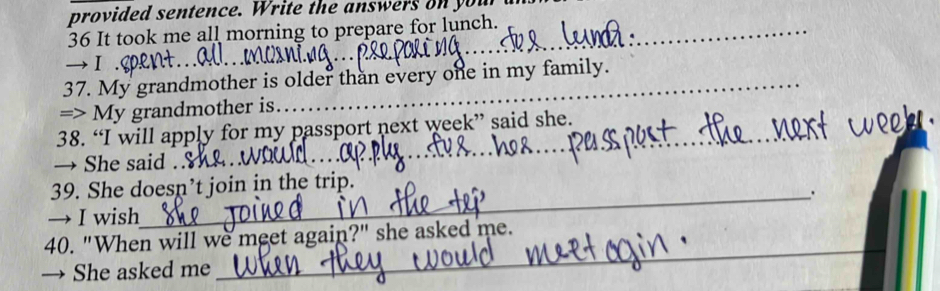 provided sentence. Write the answers on your
36 It took me all morning to prepare for lunch.
→ I spent all morning preparing for lunch.
37. My grandmother is older than every one in my family.
=> My grandmother is
38. “I will apply for my passport next week” said she.
→ She said she would apply for her passport the next week.
39. She doesn’t join in the trip.
→ I wish she joined in the trip.
40. "When will we meet again?" she asked me.
→ She asked me when they would meet agin.